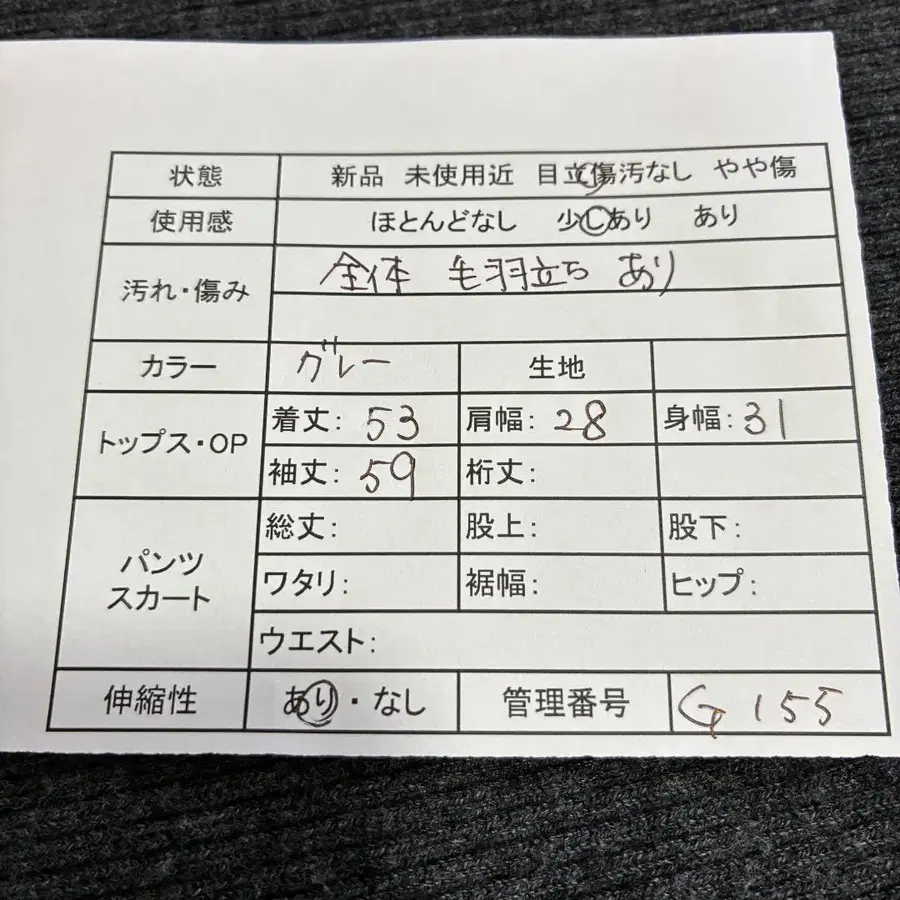 状態 新品 未使用近 目立傷汚なし やや傷
使用感 ほとんどなし 少しあり あり
汚れ・傷み 全体 毛羽立ち あり
カラー グレー 生地
トップス・OP 着丈: 53 肩幅: 28 身幅: 31
袖丈: 59 裄丈:
パンツ
スカート
総丈: 股上: 股下:
ワタリ: 裾幅: ヒップ:
ウエスト:
伸縮性 あり・なし 管理番号 G155